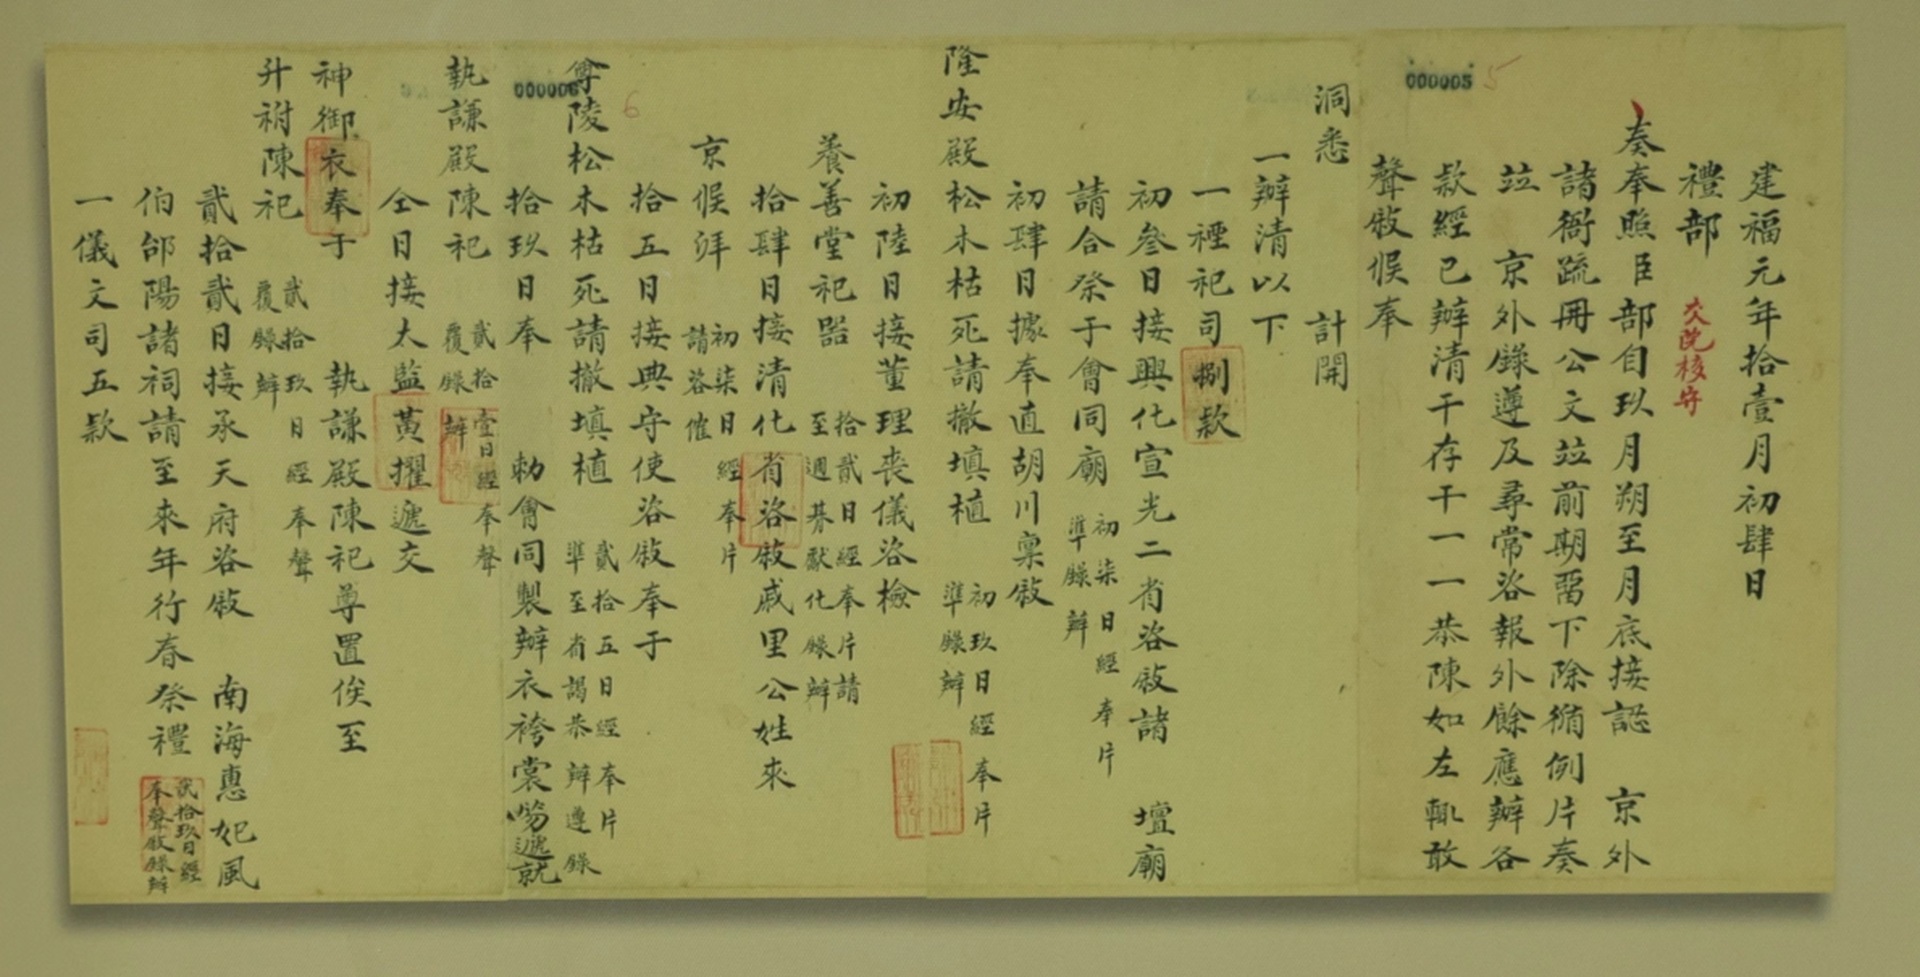 000005
5
建福元年拾壹月初肆日
禮部
交院核守
奏奉照臣部自玖月朔至月底接認 京外
諸衙䟽冊公文竝前期畱下除循例片奏
竝 京外錄遵及尋常咨報外餘應辦各
款經已辦清干存干一一恭陳如左輒敢
聲敘候奉
洞悉 計開
一辦清以下
一禋祀司捌款
初叄日接興化宣光二省咨敘諸 壇廟
請合祭于會同廟
初柒日經奉片
準錄辦
初肆日據奉直胡川稟敘
隆安殿松木枯死請撤填植
初玖日經奉片
準錄辦
初陸日接董理喪儀咨檢
養善堂祀器
拾貳日經奉片請
至週朞獻化錄辦
拾肆日接清化省咨敘戚里公姓來
京候洋
初柒日經奉片
請咨催
拾五日接典守使咨敘奉于
000006
6
尊陵松木枯死請撤填植
貳拾五日經奉片
準至省謁恭辦遵錄
拾玖日奉 勅會同製辦衣袴裳㗂遞就
執謙殿陳祀
貳拾壹日經奉聲
覆錄辦
仝日接太監黃擢遞交
神御衣奉于 執謙殿陳祀尊置俟至
升祔陳祀
貳拾玖日經奉聲
覆錄辦
貳拾貳日接承天府咨敘 南海惠妃風
伯邰陽諸祠請至來年行春祭禮
貳拾玖日經
奉聲敘錄辦
一儀文司五款